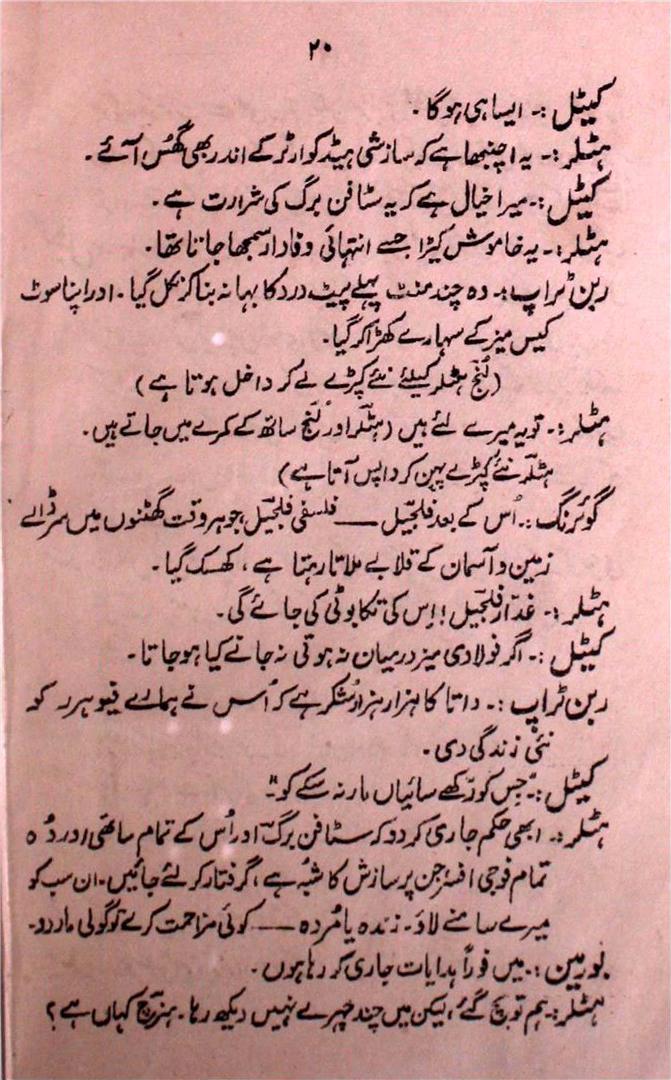 ۲۰
کیٹل :۔ ایسا ہی ہوگا ۔
ہٹلر :۔ یہ اچنبھا ہے کہ سازشی ہیڈ کوارٹر کے اندر بھی گھُس آئے ۔
کیٹل :۔ میرا خیال ہے کہ یہ سٹافن برگ کی شرارت ہے ۔
ہٹلر :۔ یہ خاموش کیڑا جسے انتہائی وفادار سمجھا جاتا تھا ۔
ربن ٹراپ :۔ وہ چند منٹ پہلے پیٹ درد کا بہانہ بنا کر نکل گیا ۔ اور اپنا سوٹ
کیس میز کے سہارے کھڑا کر گیا ۔
(لُنج ہٹلر کیلئے نئے کپڑے لے کر داخل ہوتا ہے )
ہٹلر :۔ تو یہ میرے لئے ہیں (ہٹلر اور لُنج ساتھ کے کمرے میں جاتے ہیں ۔
ہٹلر نئے کپڑے پہن کر واپس آتا ہے )
گوئرنگ :۔ اُس کے بعد فلجیّل ــــ فلسفی فلجیّل ، جو ہر وقت گھٹنوں میں سر ڈالے
زمین و آسمان کے قلابے ملاتا رہتا ہے ، کھسک گیا ۔
ہٹلر :۔ غدّار فلجیّل ! اِس کی تکا بوٹی کی جائے گی ۔
کیٹل :۔ اگر فولادی میز درمیان نہ ہوتی نہ جانے کیا ہو جاتا ۔
ربن ٹراپ :۔ داتا کا ہزار ہزار شکر ہے کہ اُس نے ہمارے فیوہرر کو
نئی زندگی دی ۔
کیٹل :۔ "جِس کو رکھے سائیاں مار نہ سکے کو"۔
ہٹلر :۔ ابھی حکم جاری کر دو کہ سٹافن برگ اور اُس کے تمام ساتھی اور وُہ
تمام فوجی افسر جن پر سازش کا شُبہ ہے ، گرفتار کر لئے جائیں ۔ ان سب کو
میرے سامنے لاؤ ۔ زندہ یا مُردہ ــــ کوئی مزاحمت کرے تو گولی مار دو ۔
بورمین :۔ میں فوراً ہدایات جاری کر رہا ہوں ۔
ہٹلر :۔ ہم تو بچ گئے ، لیکن میں چند چہرے نہیں دیکھ رہا ۔ ہنرچ کہاں ہے ؟